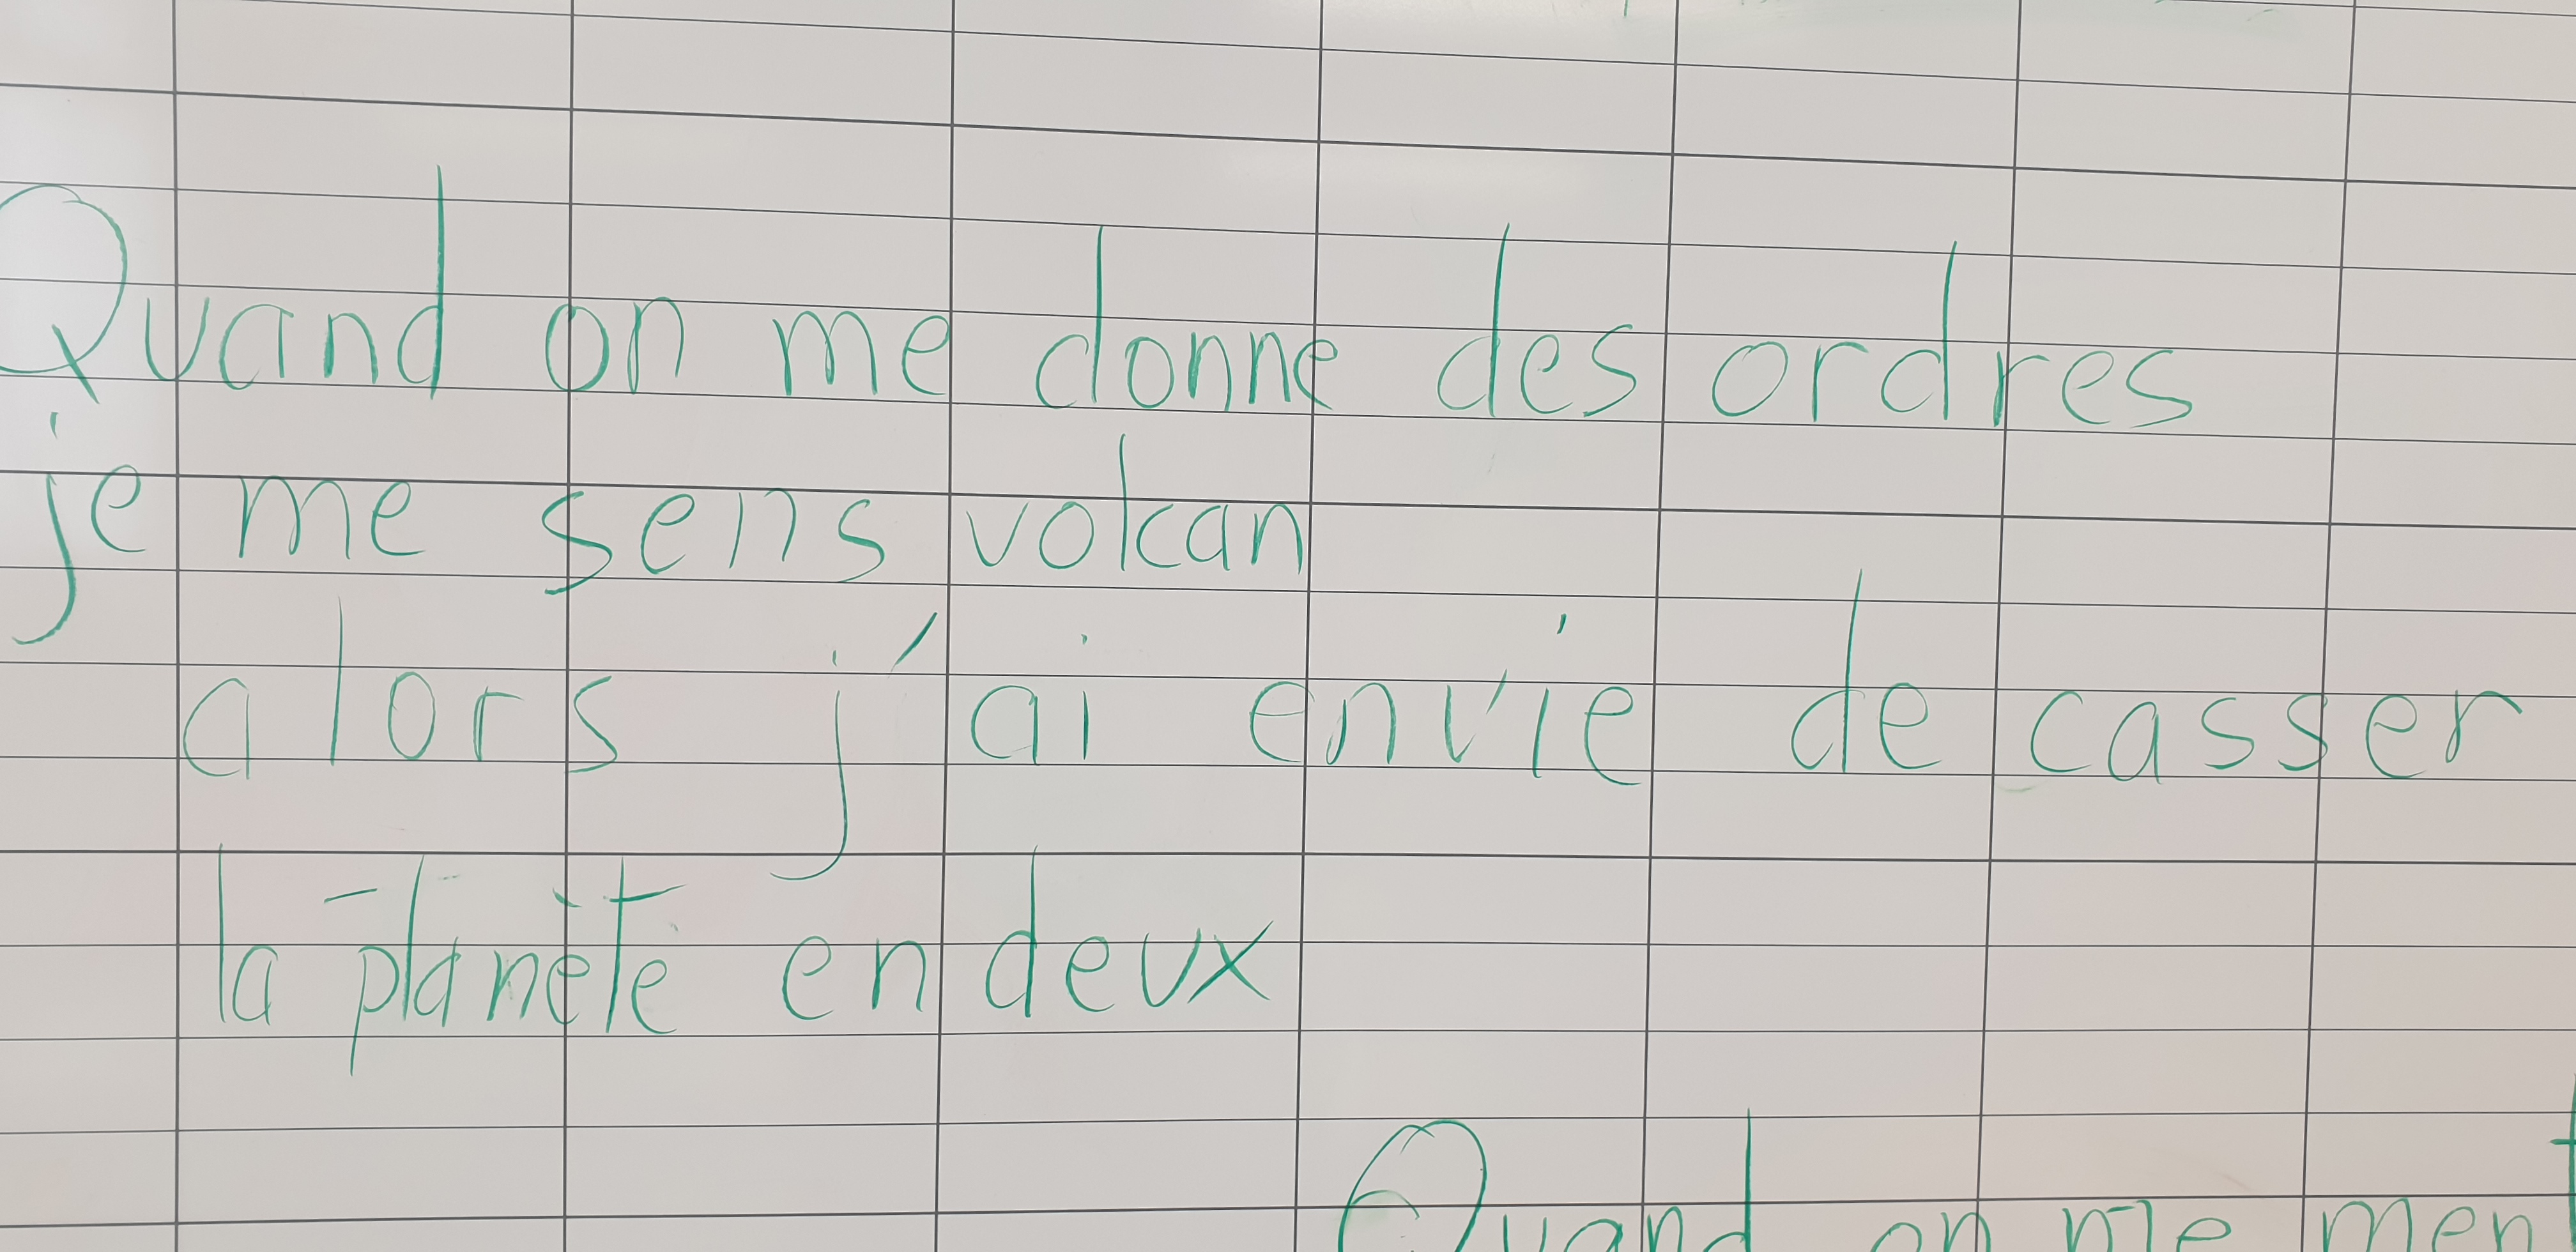 Quand on me donne des ordres
je me sens volcan
alors j'ai envie de casser
la planète en deux
Quand on me ment